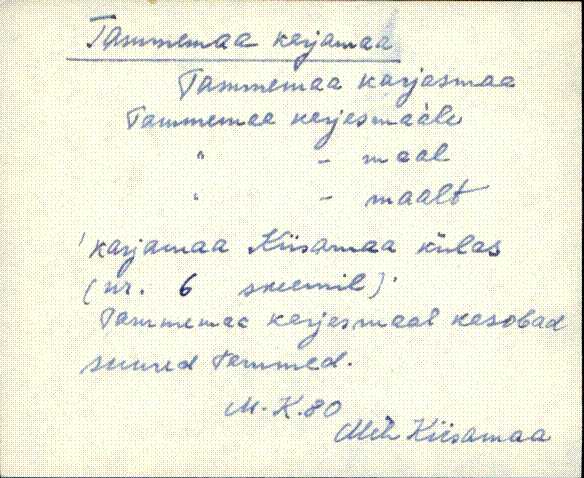 Tammemaa karjamaa
Tammemaa karjasmaa
Tammemaa karjasmaale
" - maal
" - maalt
'karjamaa Kiisamaa külas
(nr. 6 skeemil)'
Tammemaa karjasmaal kasvabad
suured tammed.
M.K.80
Kiisamaa